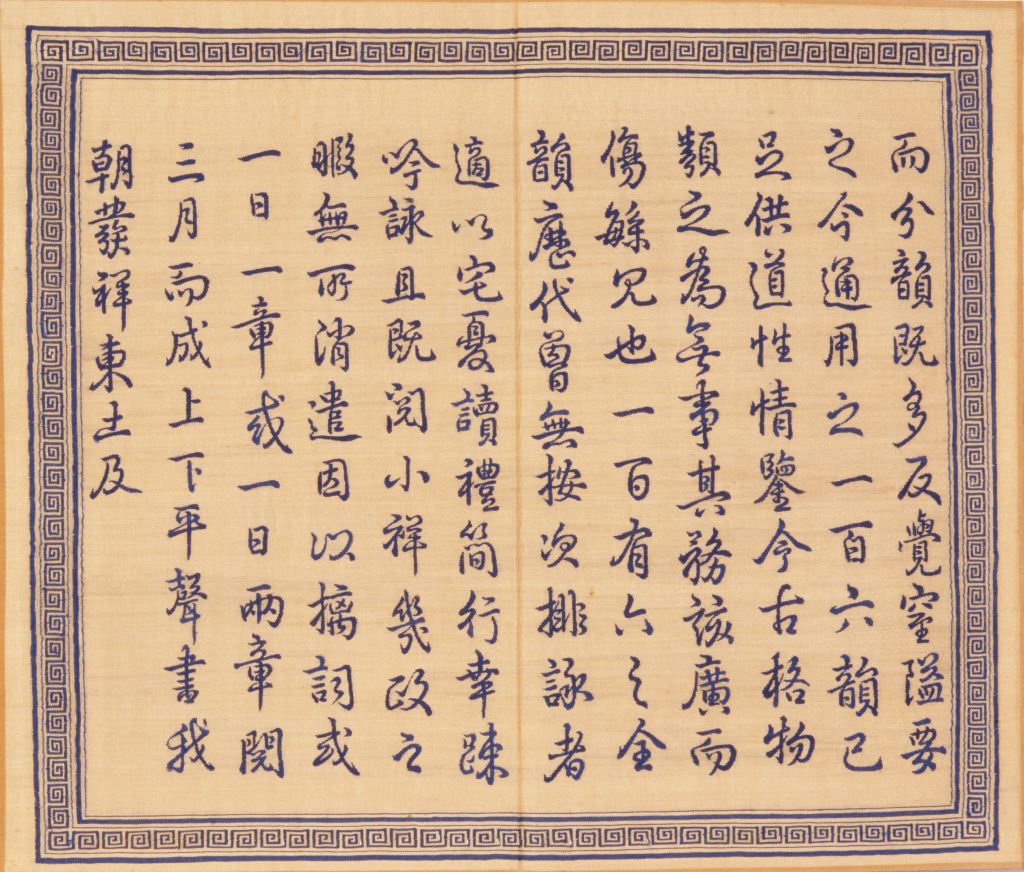 而分韻既多反覺窒隘要
之今通用之一百六韻已
足供道性情鑒今古格物
類之為無事其務該廣而
傷緐冗也一百有六之全
韻歷代曾無按次排詠者
適以宅憂讀禮簡行幸踈
吟詠且既閱小祥幾政之
暇無所消遣因以摛詞或
一日一章或一日兩章閱
三月而成上下平聲書我
朝發祥東土及